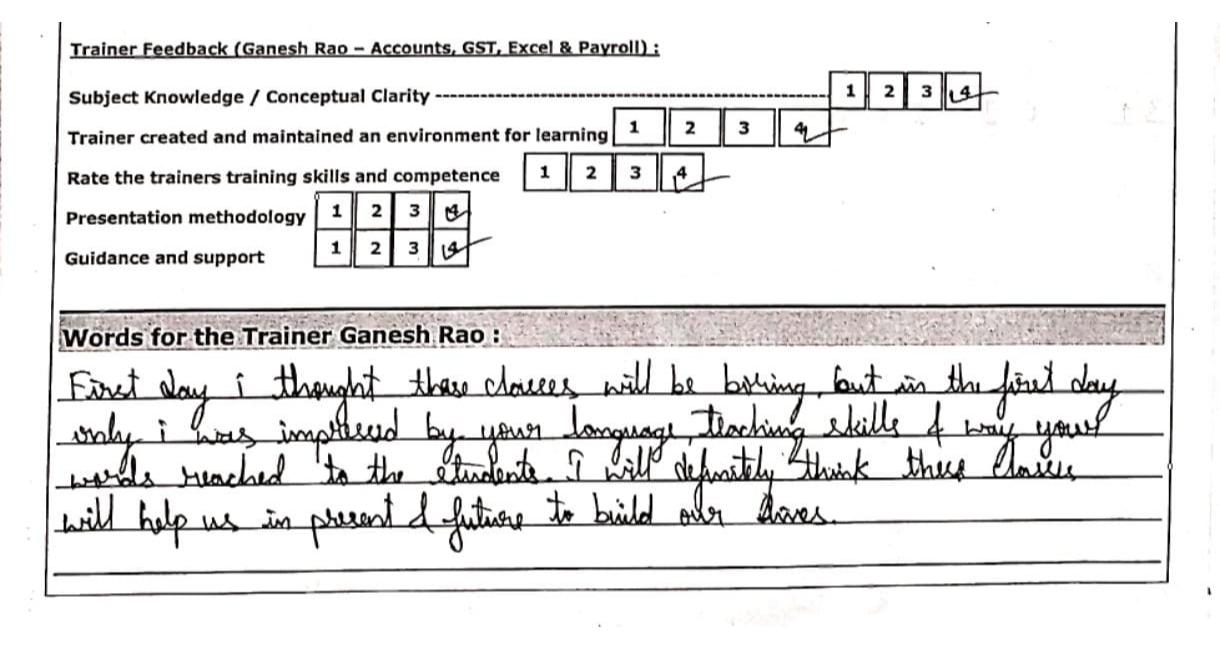 Trainer Feedback (Ganesh Rao – Accounts, GST, Excel & Payroll) :
Subject Knowledge / Conceptual Clarity ------------------------------------------------------------ 1 2 3 4
Trainer created and maintained an environment for learning 1 2 3 4
Rate the trainers training skills and competence 1 2 3 4
Presentation methodology 1 2 3 4
Guidance and support 1 2 3 4
Words for the Trainer Ganesh Rao :
First day i thought these classes will be boring, but in the first day
only i was impressed by your language, teaching skills & way your
words reached to the students. I will definitely think these classes
will help us in present & future to build our lives.